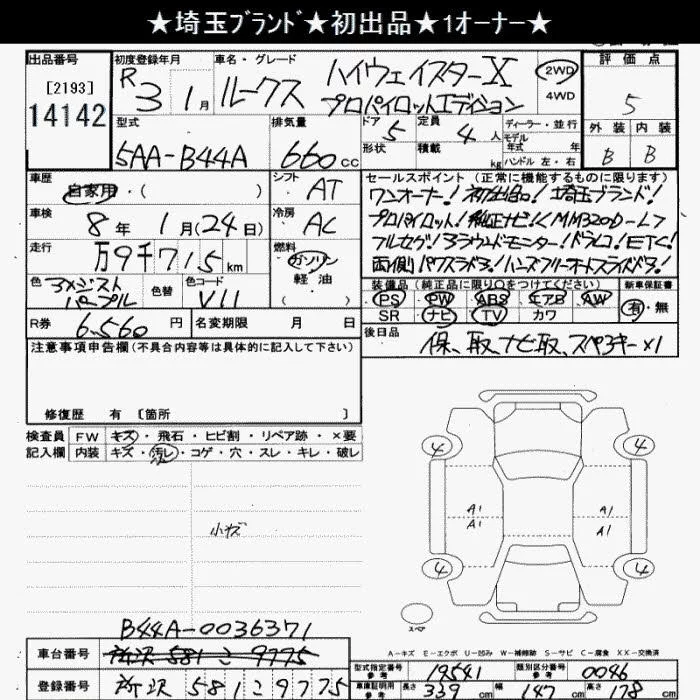 ★埼玉ブランド★初出品★1オーナー★
出品番号
[2193]
14142
初度登録年月
R 3 1月
車名・グレード
ルークス ハイウェイスターX
プロパイロットエディション
2WD
4WD
評価点
5
外装 内装
B B
型式
5AA-B44A
排気量
660cc
ドア 5
形状
定員 4人
積載 kg
ディーラー・並行
モデル
年式 年
ハンドル 左・右
車歴
自家用・( )
シフト
AT
車検
8年 1月(24日)
冷房
AC
走行
万9千715km
燃料
ガソリン
軽油
色
アメジスト
パープル
色替
色コード
V11
R券
6,560円
名変期限 月 日
セールスポイント(正常に機能するものに限ります)
ワンオーナー!初出品!埼玉ブランド!
プロパイロット!純正ナビ!<MM320D-L>
フルセグ!アラウンドモニター!ドラレコ!ETC!
両側パワスラドア!ハンズフリーオートスライドドア!
装備品(純正品に限り○をつけてください)
PS PW ABS エアB AW
SR ナビ TV カワ
新車保証書
有・無
後日品
保、取、ナビ取、スペアキー×1
注意事項申告欄(不具合内容等は具体的に記入して下さい)
修復歴 有 [箇所 ]
検査員
記入欄
FW キズ・飛石・ヒビ割・リペア跡・×要
内装 キズ・汚レ・コゲ・穴・スレ・キレ・破レ
小キズ
4 4
A1 A1
A1 A1
4 4
スペア
A-キズ E-エクボ U-凹み W-補修跡 S-サビ C-腐食 XX-交換済
B44A-0036371
車台番号
所沢 581 こ 9775
登録番号
所沢 581 こ 9775
型式指定番号
参考
19541
類別区分番号
参考
0046
車庫証明用
参考
長さ 339cm 幅 147cm 高さ 178cm